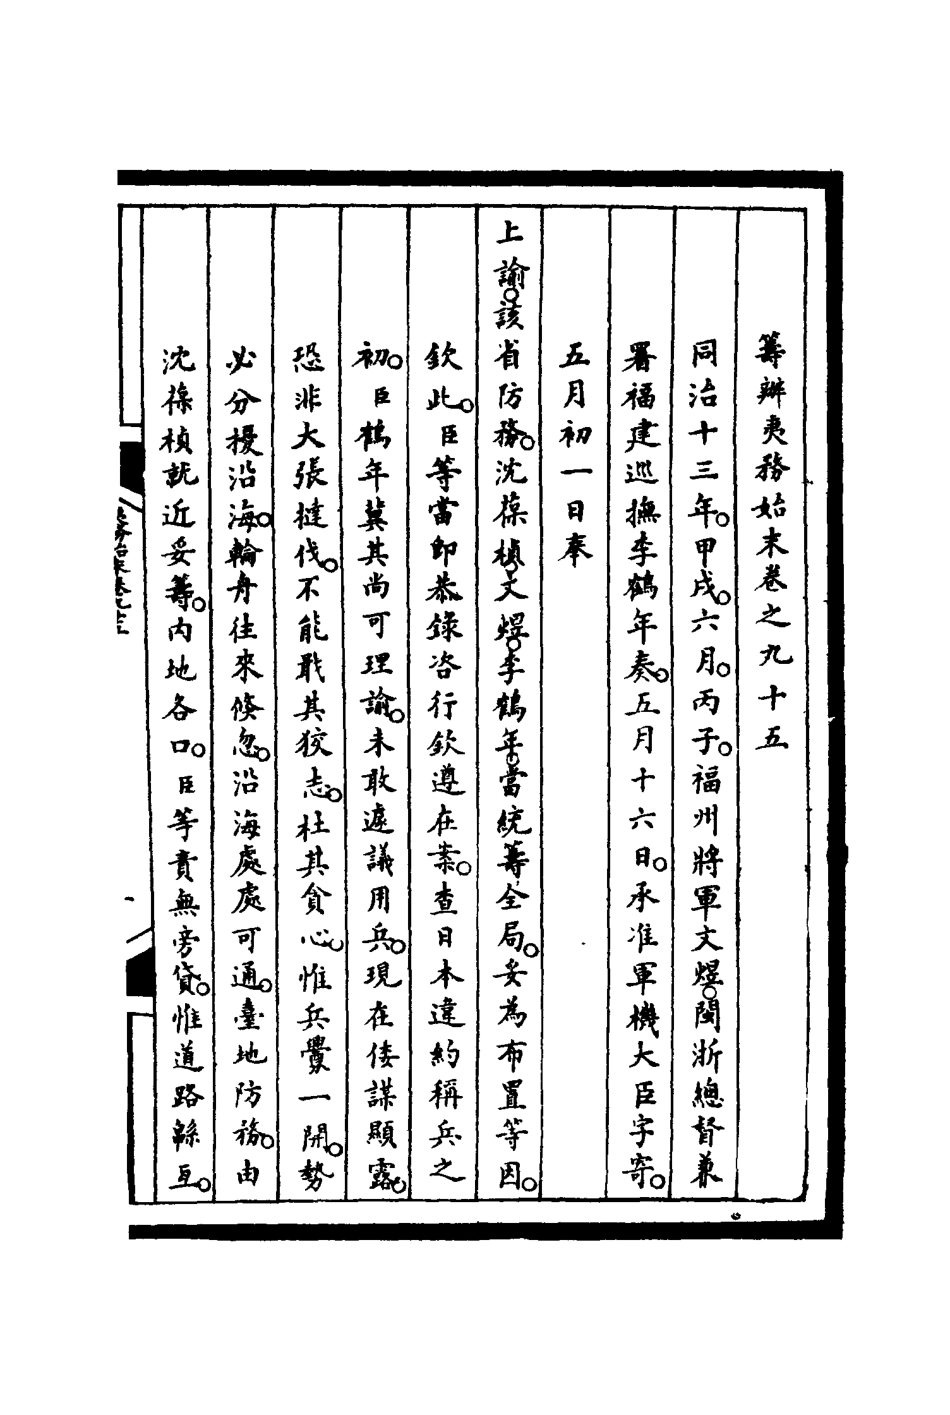 籌辦夷務始末卷之九十五
同治十三年。甲戌。六月。丙子。福州將軍文煜。閩浙總督兼
署福建巡撫李鶴年奏。五月十六日。承准軍機大臣字寄。
五月初一日奉
上諭。該省防務。沈葆楨。文煜。李鶴年。當統籌全局。妥為布置等因。
欽此。臣等當即恭錄咨行欽遵在案。查日本違約稱兵之
初。臣鶴年冀其尚可理諭。未敢遽議用兵。現在倭謀顯露。
恐非大張撻伐。不能戢其狡志。杜其貪心。惟兵釁一開。勢
必分擾沿海。輪舟往來倏忽。沿海處處可通。臺地防務。由
沈葆楨就近妥籌。內地各口。臣等責無旁貸。惟道路緜亙。